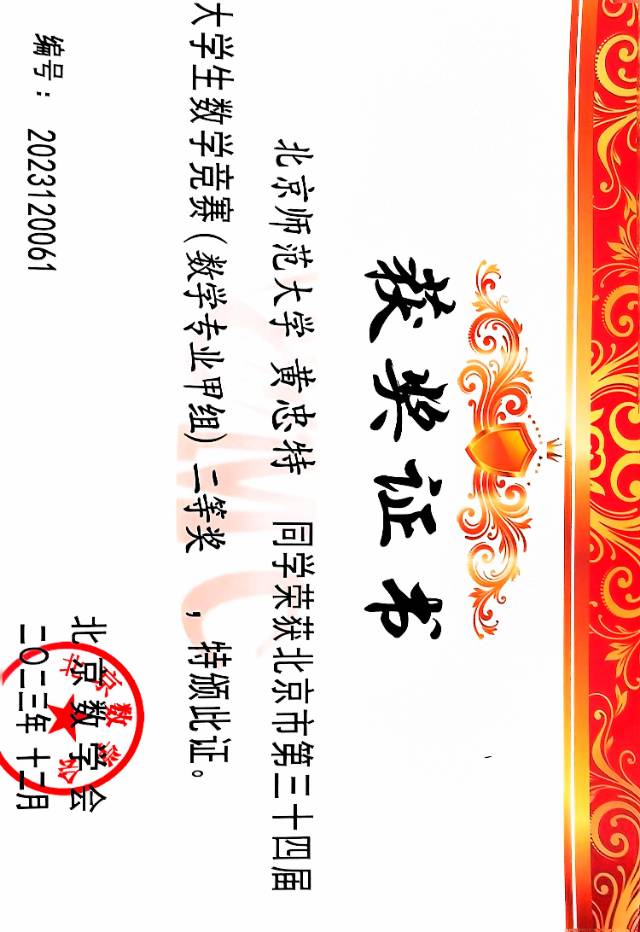 获奖证书
北京师范大学 黄忠特 同学荣获北京市第三十四届
大学生数学竞赛(数学专业甲组)二等奖 ,特颁此证。
北京数学会
二〇二三年十二月
编号:2023120061
北京数学会